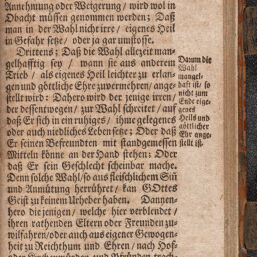 Annehmung oder Weigerung / wird wol in
Obacht müssen genommen werden; Daß
man in der Wahl nicht irre / eigenes Heil
in Gefahr setze / oder ja gar umstosse.
Drittens: Daß die Wahl allezeit man-
gelhafftig sey / wann sie aus anderem
Trieb / als eigenes Heil leichter zu erlan-
gen und göttliche Ehre zu vermehren / ange-
stellt wird: Dahero wird der jenige irren /
der dessentwegen / zur Wahl schreitet / auf
daß Er sich in ein ruhiges / ihme gelegenes
oder auch niedliches Leben setze; Oder daß
Er seinen Befreundten mit standgemessen
Mitteln könne an der Hand stehen: Oder
daß Er sein Geschlecht scheinbar mache.
Denn solche Wahl / so aus fleischlichem Sinn
und Anmütung herrühret / kan GOttes
Geist zu keinem Urheber haben. Dannen-
hero die jenigen / welche hier verblendet /
ihren rathenden Eltern oder Freunden zu
wilfahren / oder auch aus eigener Gewogen-
heit zu Reichthum und Ehren / nach Hof-
Darum die
Wahl
mangel-
haft ist / so
nicht zum
Ende eige-
nes
Heils und
göttlicher
Ehr ange-
stellt ist.